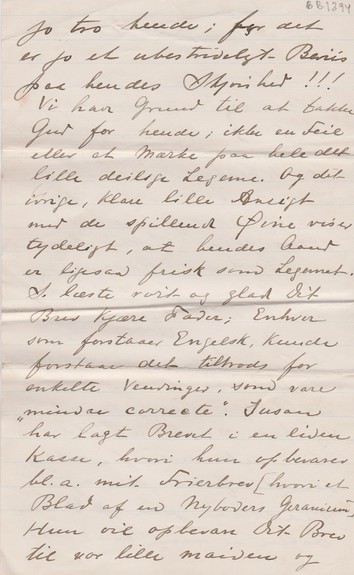 BB1294
jo tro hende; for det
er jo et ubestrideligt Beviis
paa hendes Skjønhed!!!
Vi har Grund til at takke
Gud for hende; ikke en Feil
eller et Mærke paa hele det
lille deilige Legeme. Og det
ivrige, klare lille Ansigt
med de spillende Øine viser
tydeligt, at hendes Aand
er ligesaa frisk som Legemet.
S. læste rørt og glad Dit
Brev kjære Fader; Enhver
som forstaaer Engelsk, kunde
forstaae det tiltrods for
enkelte Vendinger, som vare
"mindre correcte". Susan
har lagt Brevet i en liden
Kasse, hvori hun opbevarer
bl.a. mit Frierbrev [hvori et
Blad af en Nyboders Geranium]
Hun vil opbevare Dit Brev
til vor lille maiden og